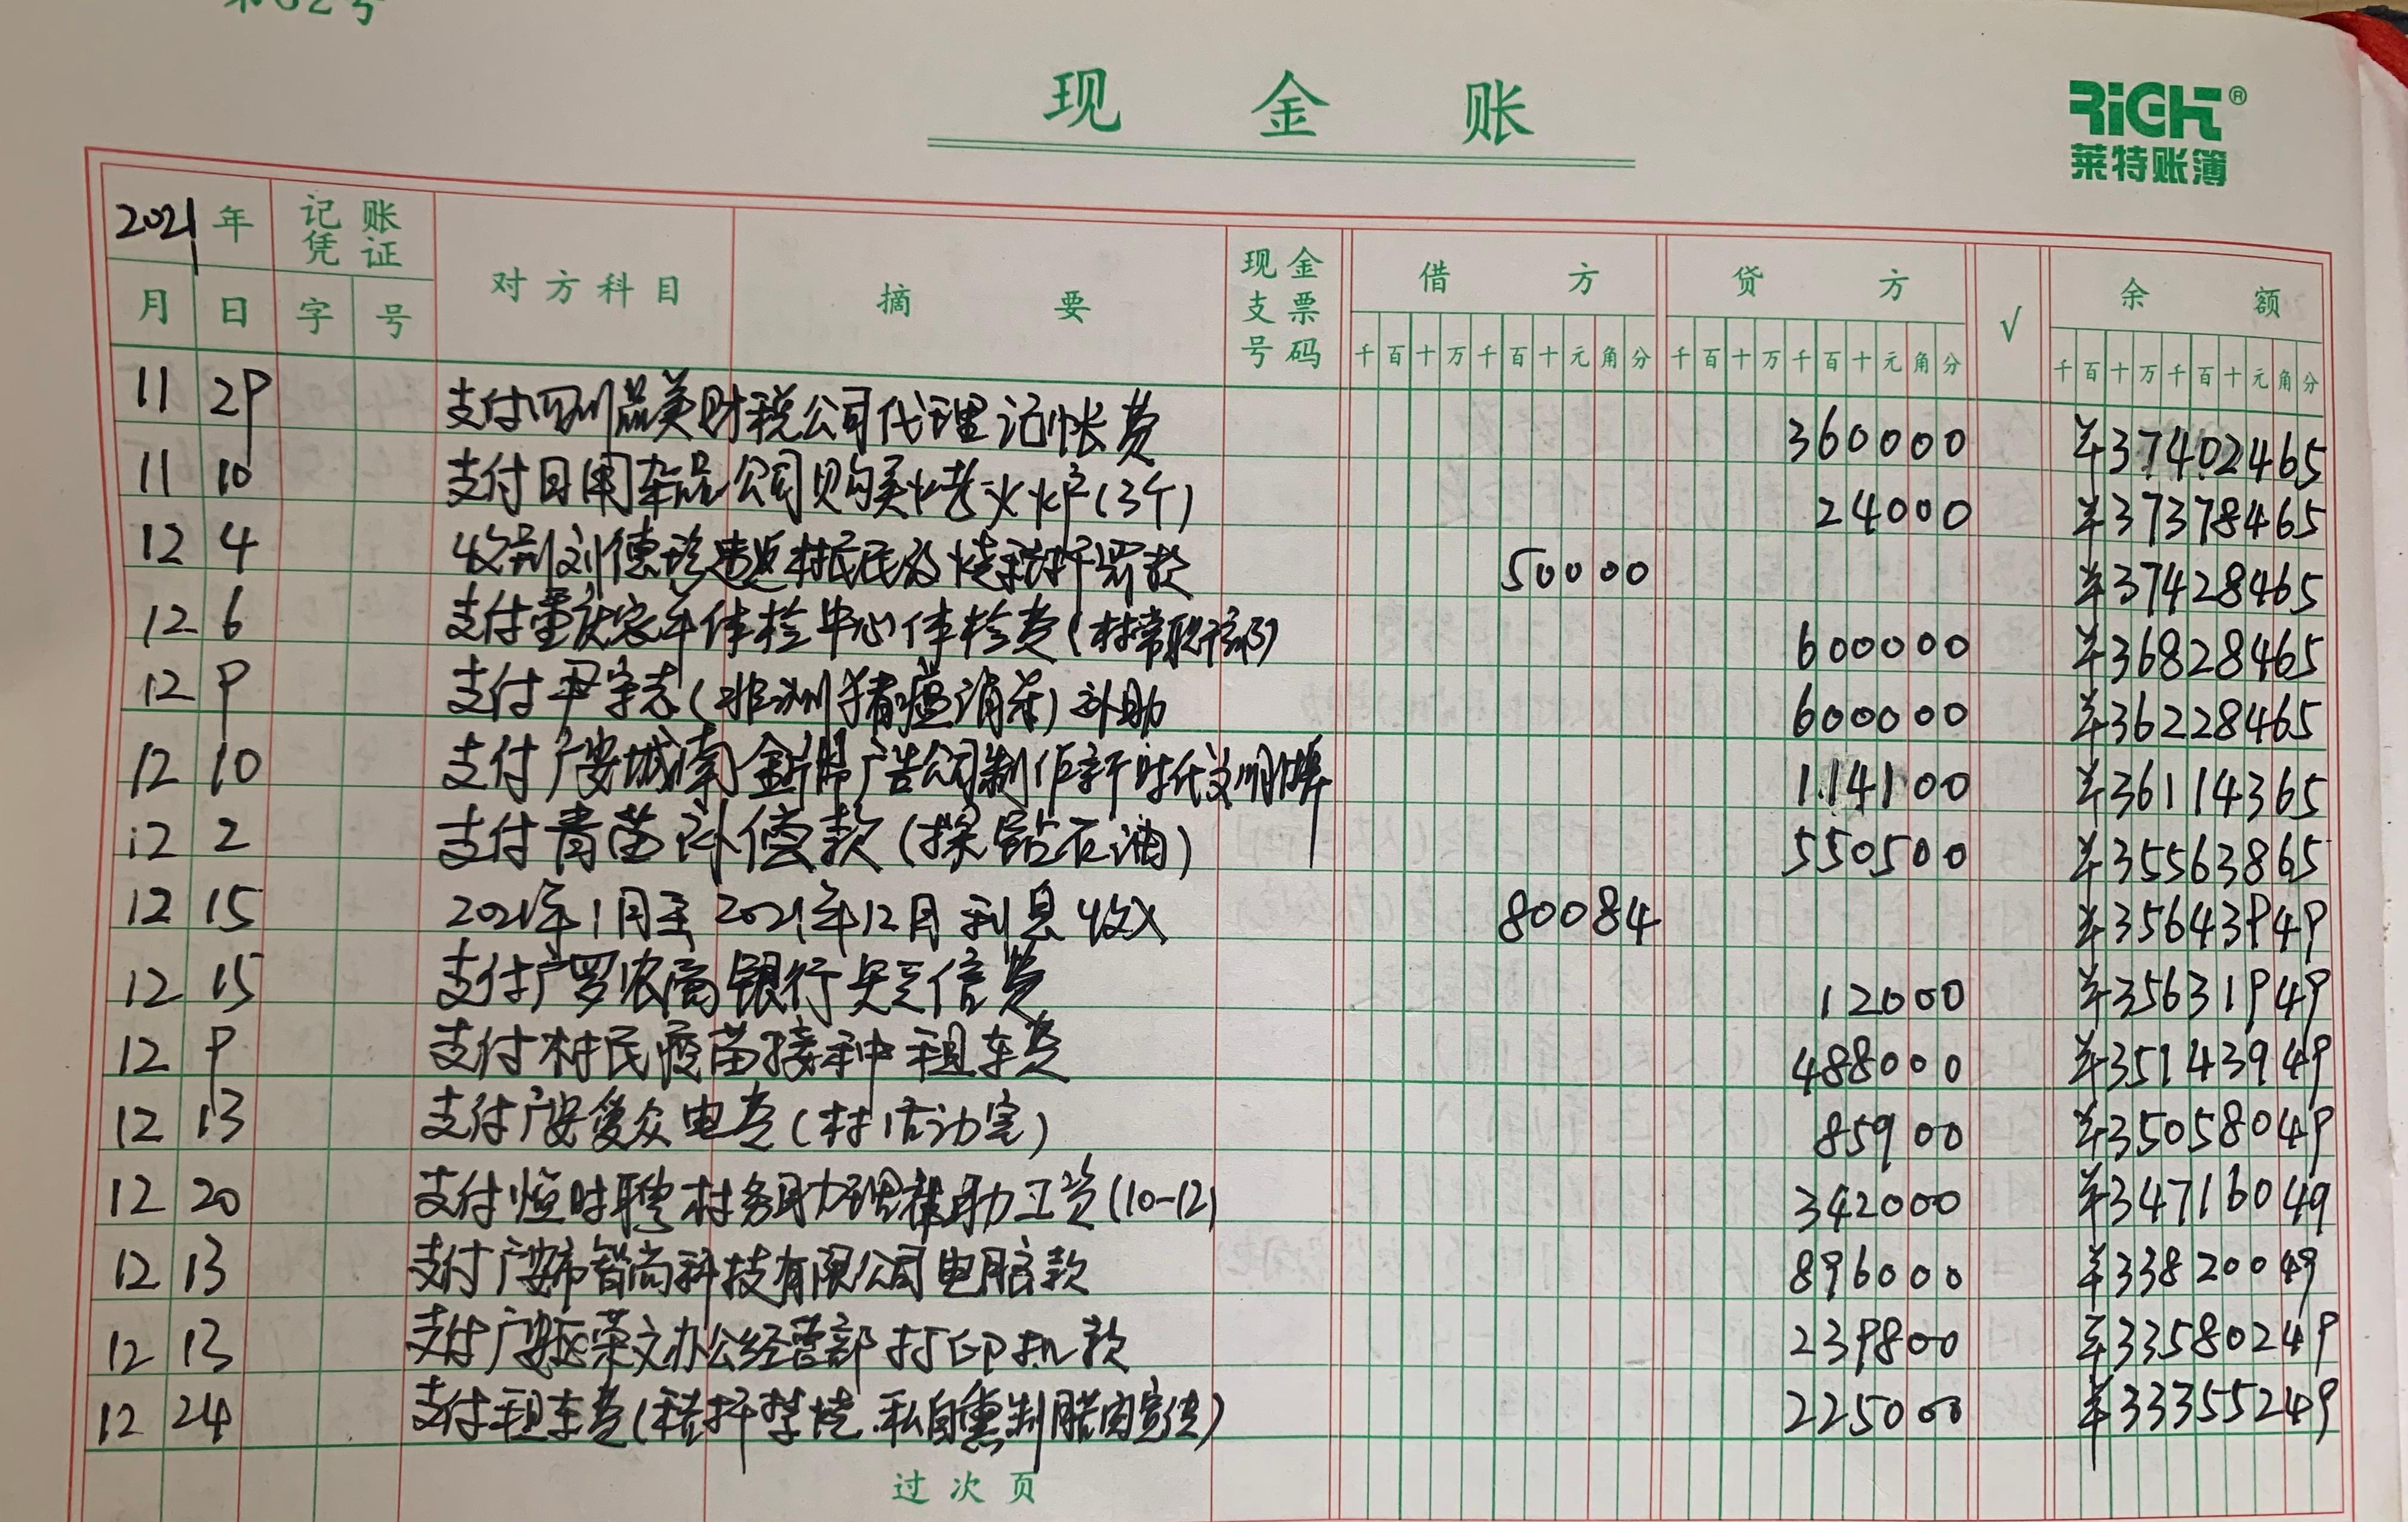 第62号
现金账
RiGHT®
莱特账簿
2021年 记账凭证 对方科目 摘要 现金支票号码 借方 贷方 √ 余额
月 日 字 号 千百十万千百十元角分 千百十万千百十元角分 千百十万千百十元角分
11 29 支付四川品美财税公司代理记帐费 360000 ¥37402465
11 10 支付日用杂品公司购买烤火炉(3个) 24000 ¥37378465
12 4 收到刘德珍违返村民民约烧秸秆罚款 50000 ¥37428465
12 6 支付重庆宏年体检中心体检费(村常职干部) 600000 ¥36828465
12 9 支付尹宇志(非洲猪瘟消杀)补助 600000 ¥36228465
12 10 支付广安城南金牌广告公司制作新时代文明牌 114100 ¥36114365
12 2 支付青苗补偿款(探钻石油) 550500 ¥35563865
12 15 2021年1月至2021年12月利息收入 80084 ¥35643949
12 15 支付广罗农商银行短信费 12000 ¥35631949
12 9 支付村民疫苗接种租车费 488000 ¥35143949
12 13 支付广安爱众电费(村活动室) 85900 ¥35058049
12 20 支付临时聘村务助理补助工资(10-12) 342000 ¥34716049
12 13 支付广安市智尚科技有限公司电脑款 896000 ¥33820049
12 13 支付广安荣文办公经营部打印机款 239800 ¥33580249
12 24 支付租车费(秸秆禁烧.私自熏制腊肉宣传) 225000 ¥33355249
过次页